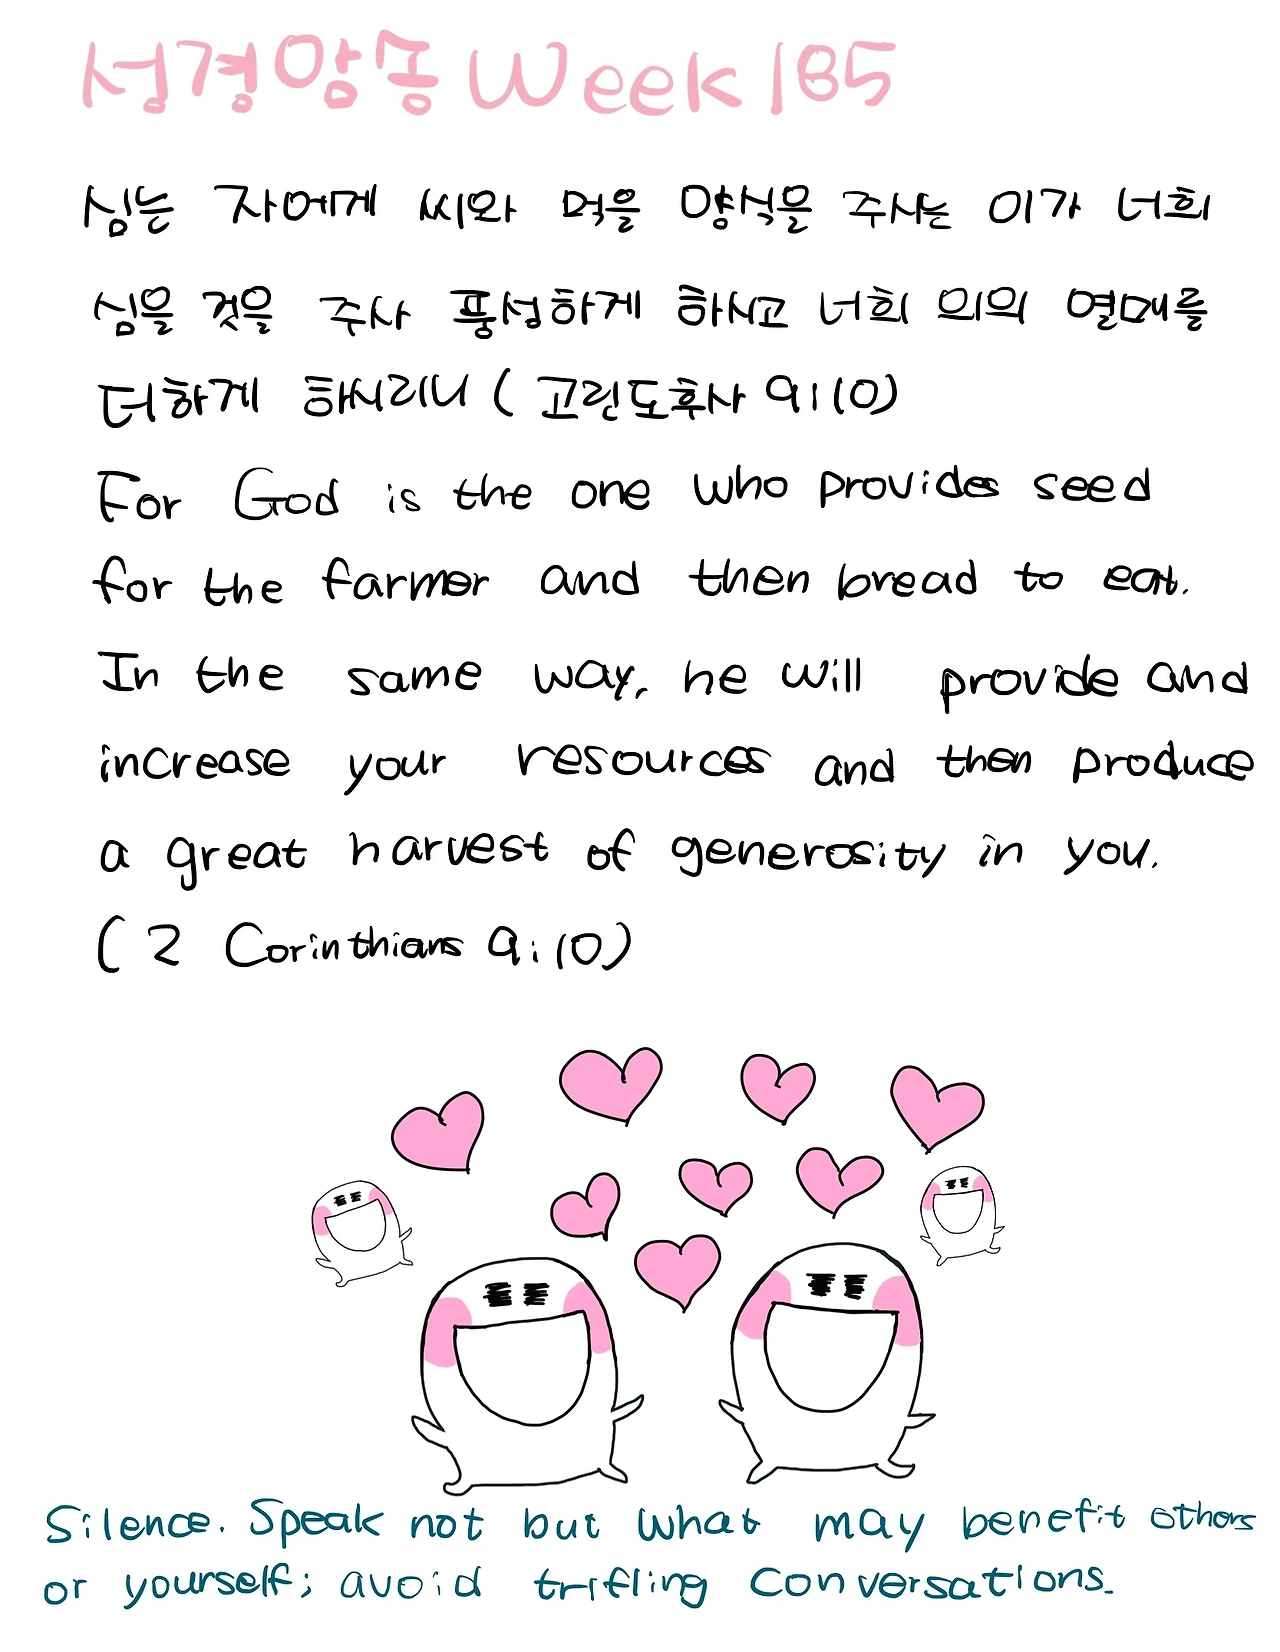 성경암송 Week 185
심는 자에게 씨와 먹을 양식을 주시는 이가 너희
심을 것을 주사 풍성하게 하시고 너희 의의 열매를
더하게 하시리니 (고린도후사 9:10)
For God is the one who provides seed
for the farmer and then bread to eat.
In the same way, he will provide and
increase your resources and then produce
a great harvest of generosity in you.
(2 Corinthians 9:10)
Silence. Speak not but what may benefit others
or yourself; avoid trifling conversations.